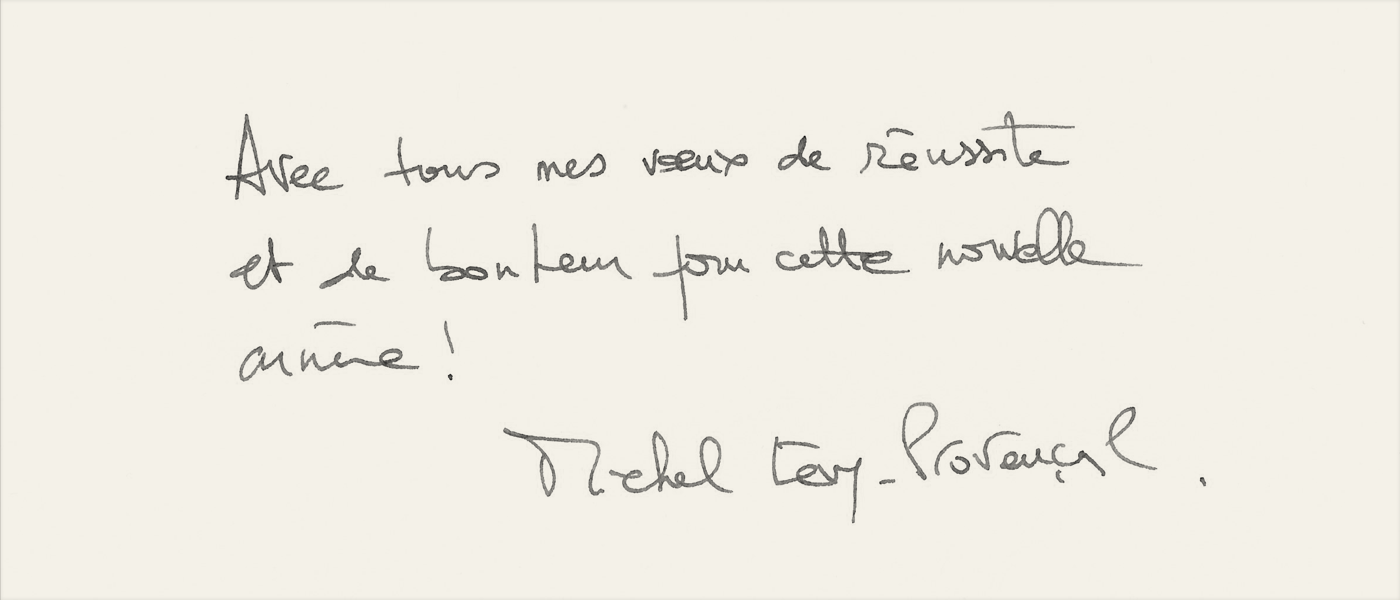 Avec tous mes vœux de réussite
et de bonheur pour cette nouvelle
année !
Michel Levy-Provençal.